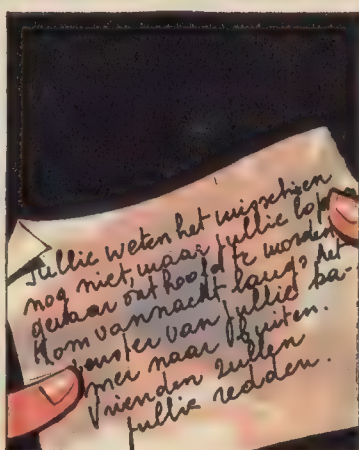 Jullie weten het misschien
nog niet, maar jullie lop
gevaar onthoofd te worden
Kom vannacht langs het
venster van jullie ka-
mer naar buiten.
Vrienden zullen
jullie redden.